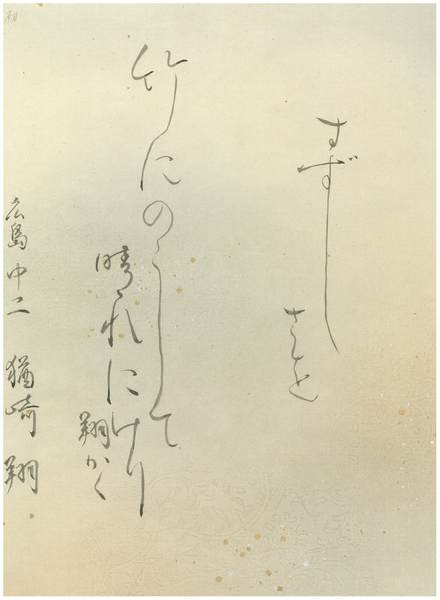 すずし
さを
竹にのこして
晴れにけり
翔かく
広島 中二 猶崎 翔